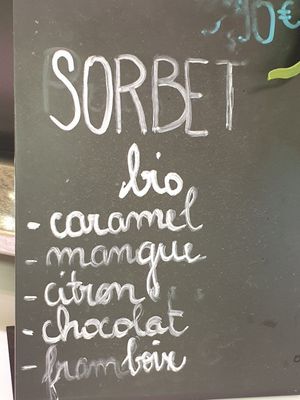 SORBET
bio
- caramel
- mangue
- citron
- chocolat
- framboix